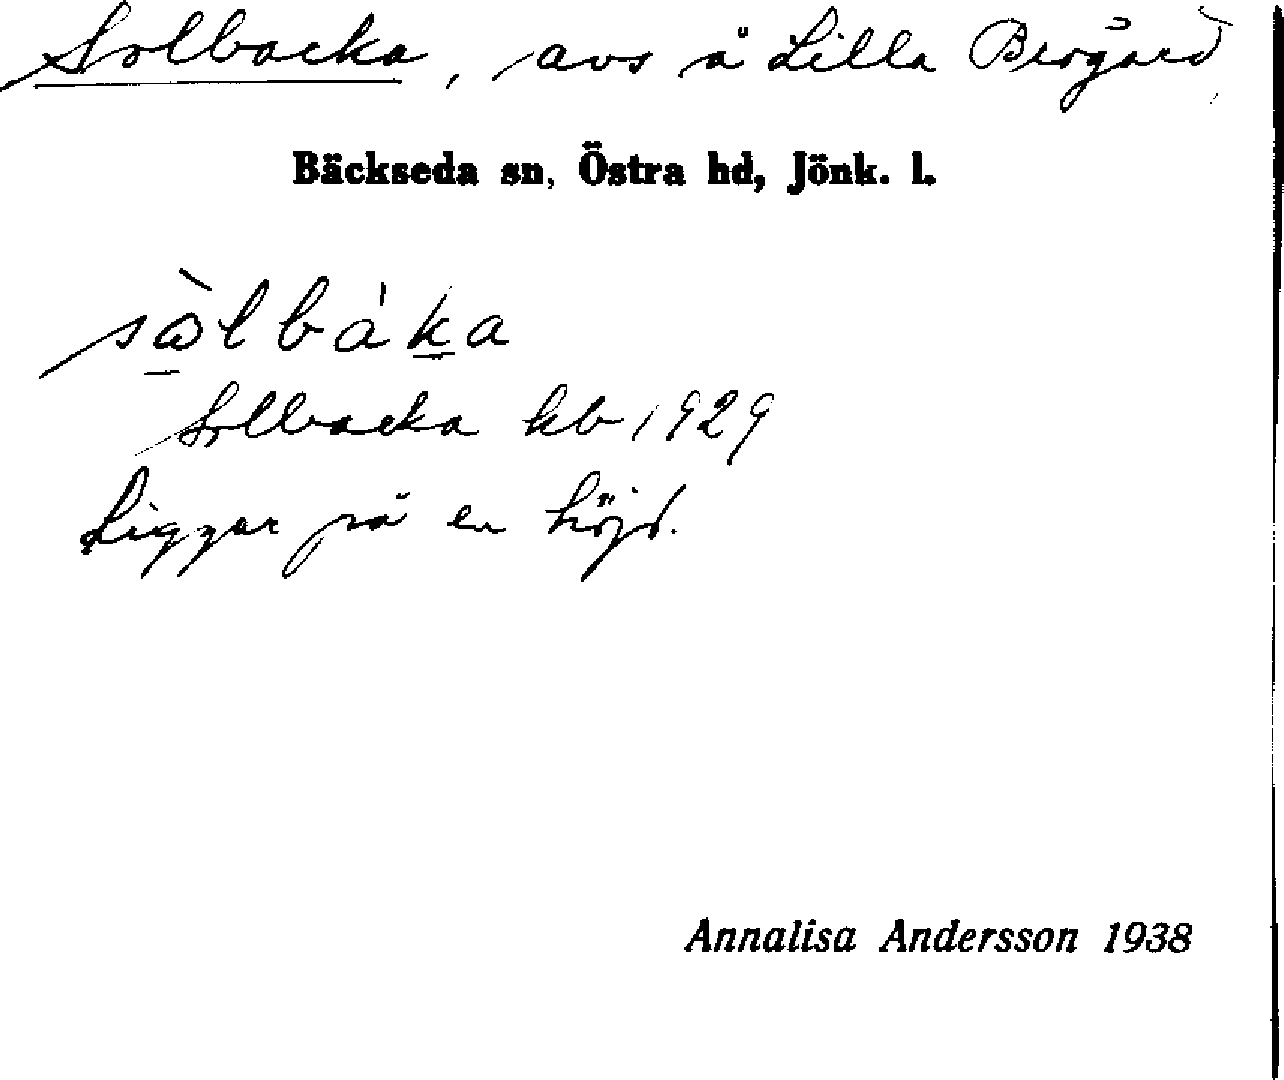 Solbacka, avs å Lilla Bergård
Bäckseda sn, Östra hd, Jönk. l.
sàlbáka
Solbacka kb 1929
Ligger på en höjd.
Annalisa Andersson 1938